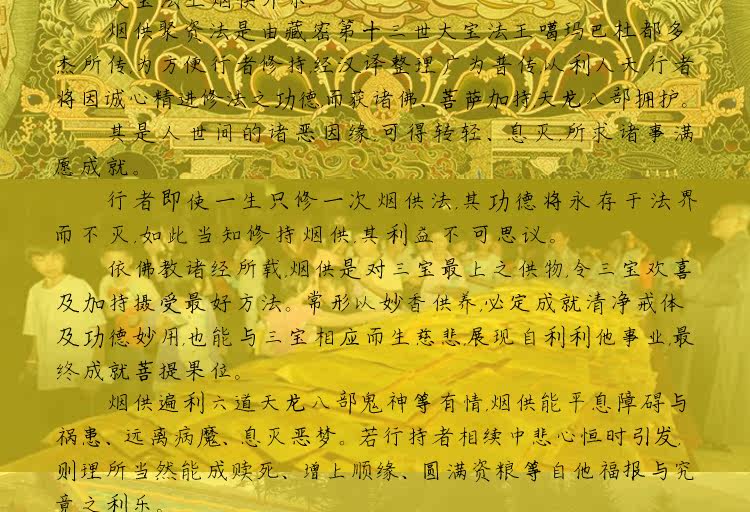 大宝法王烟供介绍
烟供聚资法是由藏密第十三世大宝法王噶玛巴杜都多
杰所传,为方便行者修持,经汉译整理广为普传,以利人天,行者
将因诚心精进修法之功德而获诸佛、菩萨加持天龙八部拥护。
其是人世间的诸恶因缘,可得转轻、息灭,所求诸事满
愿成就。
行者即使一生只修一次烟供法,其功德将永存于法界
而不灭,如此当知修持烟供,其利益不可思议。
依佛教诸经所载,烟供是对三宝最上之供物,令三宝欢喜
及加持摄受最好方法。常形以妙香供养,必定成就清净戒体
及功德妙用,也能与三宝相应而生慈悲,展现自利利他事业,最
终成就菩提果位。
烟供遍利六道天龙八部鬼神等有情,烟供能平息障碍与
祸患、远离病魔、息灭恶梦。若行持者相续中悲心恒时引发,
则理所当然能成赎死、增上顺缘、圆满资粮等自他福报与究
竟之利乐。